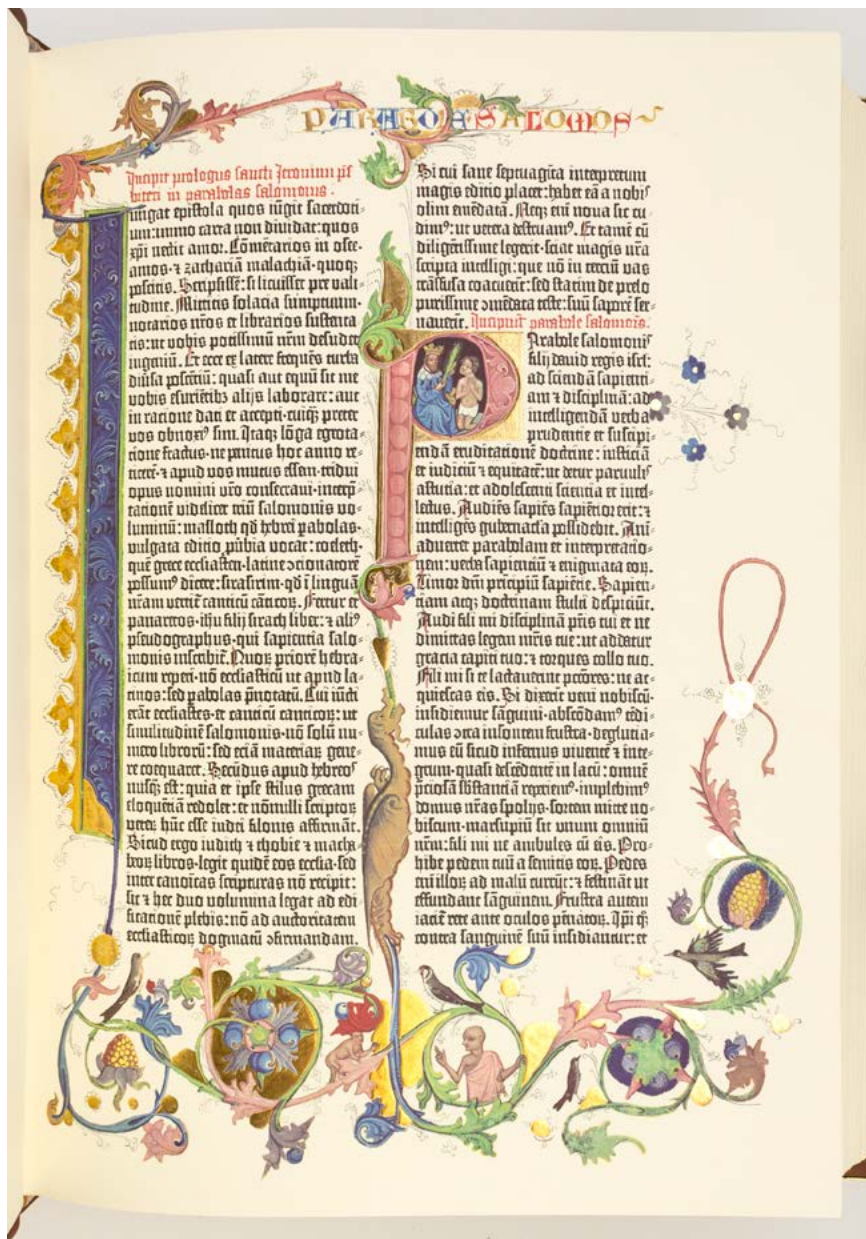 PARABOLE SALOMOS
Incipit prologus sancti Jeronimi pſ
biteri in parabolas salomonis.
Iungat epistola quos iūgit sacerdoti-
um: immo carta non dividat: quos
xp̄i nectit amor. Cōmētarios in osee-
amos· ⁊ zachariā malachiā· quoq;
poscitis. Scripsissē: si licuisset pre vali-
tudine. Mittitis solacia sumptuum·
notarios nr̄os et librarios sustenta-
tis: ut vobis potissimū nr̄m desudet
ingeniū. Et ecce ex latere frequēs turba
diūsa poscētiū: quasi aut equū sit me
vobis esurietib⁹ alijs laborare: aut
in racione dati et accepti· cuiq̄ preter
vos obnoxi⁹ sim. Itaq; lōga egrota-
tione fractus· ne penitus hoc anno re-
ticerē· ⁊ apud vos mutus essem· tridui
opus nomini vr̄o consecravi· interp̄-
tationē videlicet triū salomonis vo-
luminū: masloth qd̄ hebrei ꝑabolas·
vulgata editio ꝓubia vocat: coeleth·
quē grece ecclesiasten· latine ↄcionatorē
possum⁹ dicere: sirasirim· qd̄ ī linguā
nr̄am vertit᷑ canticū cāticoꝝ. Fertur et
panaretos· ihu filij sirach liber: ⁊ ali⁹
pseudographus· qui sapientia salo-
monis inscribit᷑. Quoꝝ priorē hebra-
icum reperi· nō ecclesiasticū ut apud la-
tinos: sed ꝑabolas p̄notatū. Cui iūcti
erāt ecclesiastes· et canticū canticoꝝ: ut
similitudinē salomonis· nō solū nu-
mero librorū: sed etiā materiaꝝ gene-
re coequaret. Secūdus apud hebreos
nusq̄ est: quia et ipse stilus grecam
eloquētiā redolet: et nōnulli scriptoꝝ
veteꝝ hūc esse iudei filonis affirmāt.
Sicud ergo iudich ⁊ thobie ⁊ macha-
beoꝝ libros· legit quidē eos ecclia· sed
inter canōicas scripturas nō recipit:
sic ⁊ hec duo volumina legat ad edi-
ficationē plebis: nō ad auctoritatem
ecclesiasticoꝝ dogmatū ↄfirmandam.
Si cui sane septuagīta interpretum
magis editio placet: habet eā a nobis
olim emēdatā. Neq; eni nova sic cu-
dim⁹: ut vetera destruam⁹. Et tamē cū
diligētissime legerit· sciat magis nr̄a
scripta intelligi: que nō in terciū vas
trāsfusa coacuerīt: sed statim de prelo
purissime ↄmēdata teste: suū saporē ser-
vaverīt. Incipiunt parabole salomonis.
Parabole salomonis
filij david regis isrl̄:
ad sciendā sapienti-
am ⁊ disciplinā: ad
intelligendā verba
prudentie et suscipi-
endā eruditationē doctrine: iusticiā
et iudiciū ⁊ equitatē: ut detur parvulis
astutia: et adolescenti scientia et intel-
lectus. Audiēs sapiēs sapiētior erit: ⁊
intelligēs gubernacula possidebit. Ani-
advertet parabolam et interpretatio-
nem: verba sapientiū ⁊ enigmata eoꝝ.
Timor dn̄i principiū sapiētie. Sapien-
tiam atq; doctrinam stulti despiciūt.
Audi fili mi disciplinā pr̄is tui et ne
dimittas legem mr̄is tue: ut addatur
gracia capiti tuo: ⁊ torques collo tuo.
Fili mi si te lactaverint pctōres: ne ac-
quiescas eis. Si dixerīt veni nobiscū·
insidiemur sāguini· abscōdam⁹ tēdi-
culas ↄtra insontem frustra· deglutia-
mus eū sicud infernus viventē ⁊ inte-
grum· quasi descēdentē in lacū: omnē
p̄ciosā sb̄stantiā reperiem⁹· implebim⁹
domus nr̄as spolijs· sortem mitte no-
biscum· marsupiū sit unum omniū
nr̄m: fili mi ne ambules cū eis. Pro-
hibe pedem tuū a semitis eoꝝ. Pedes
eni illoꝝ ad malū currūt: ⁊ festināt ut
effundant sāguinem. Frustra autem
iacit᷑ rete ante oculos pēnatoꝝ. Ipi q̄
contra sanguinē suū insidiantur: et